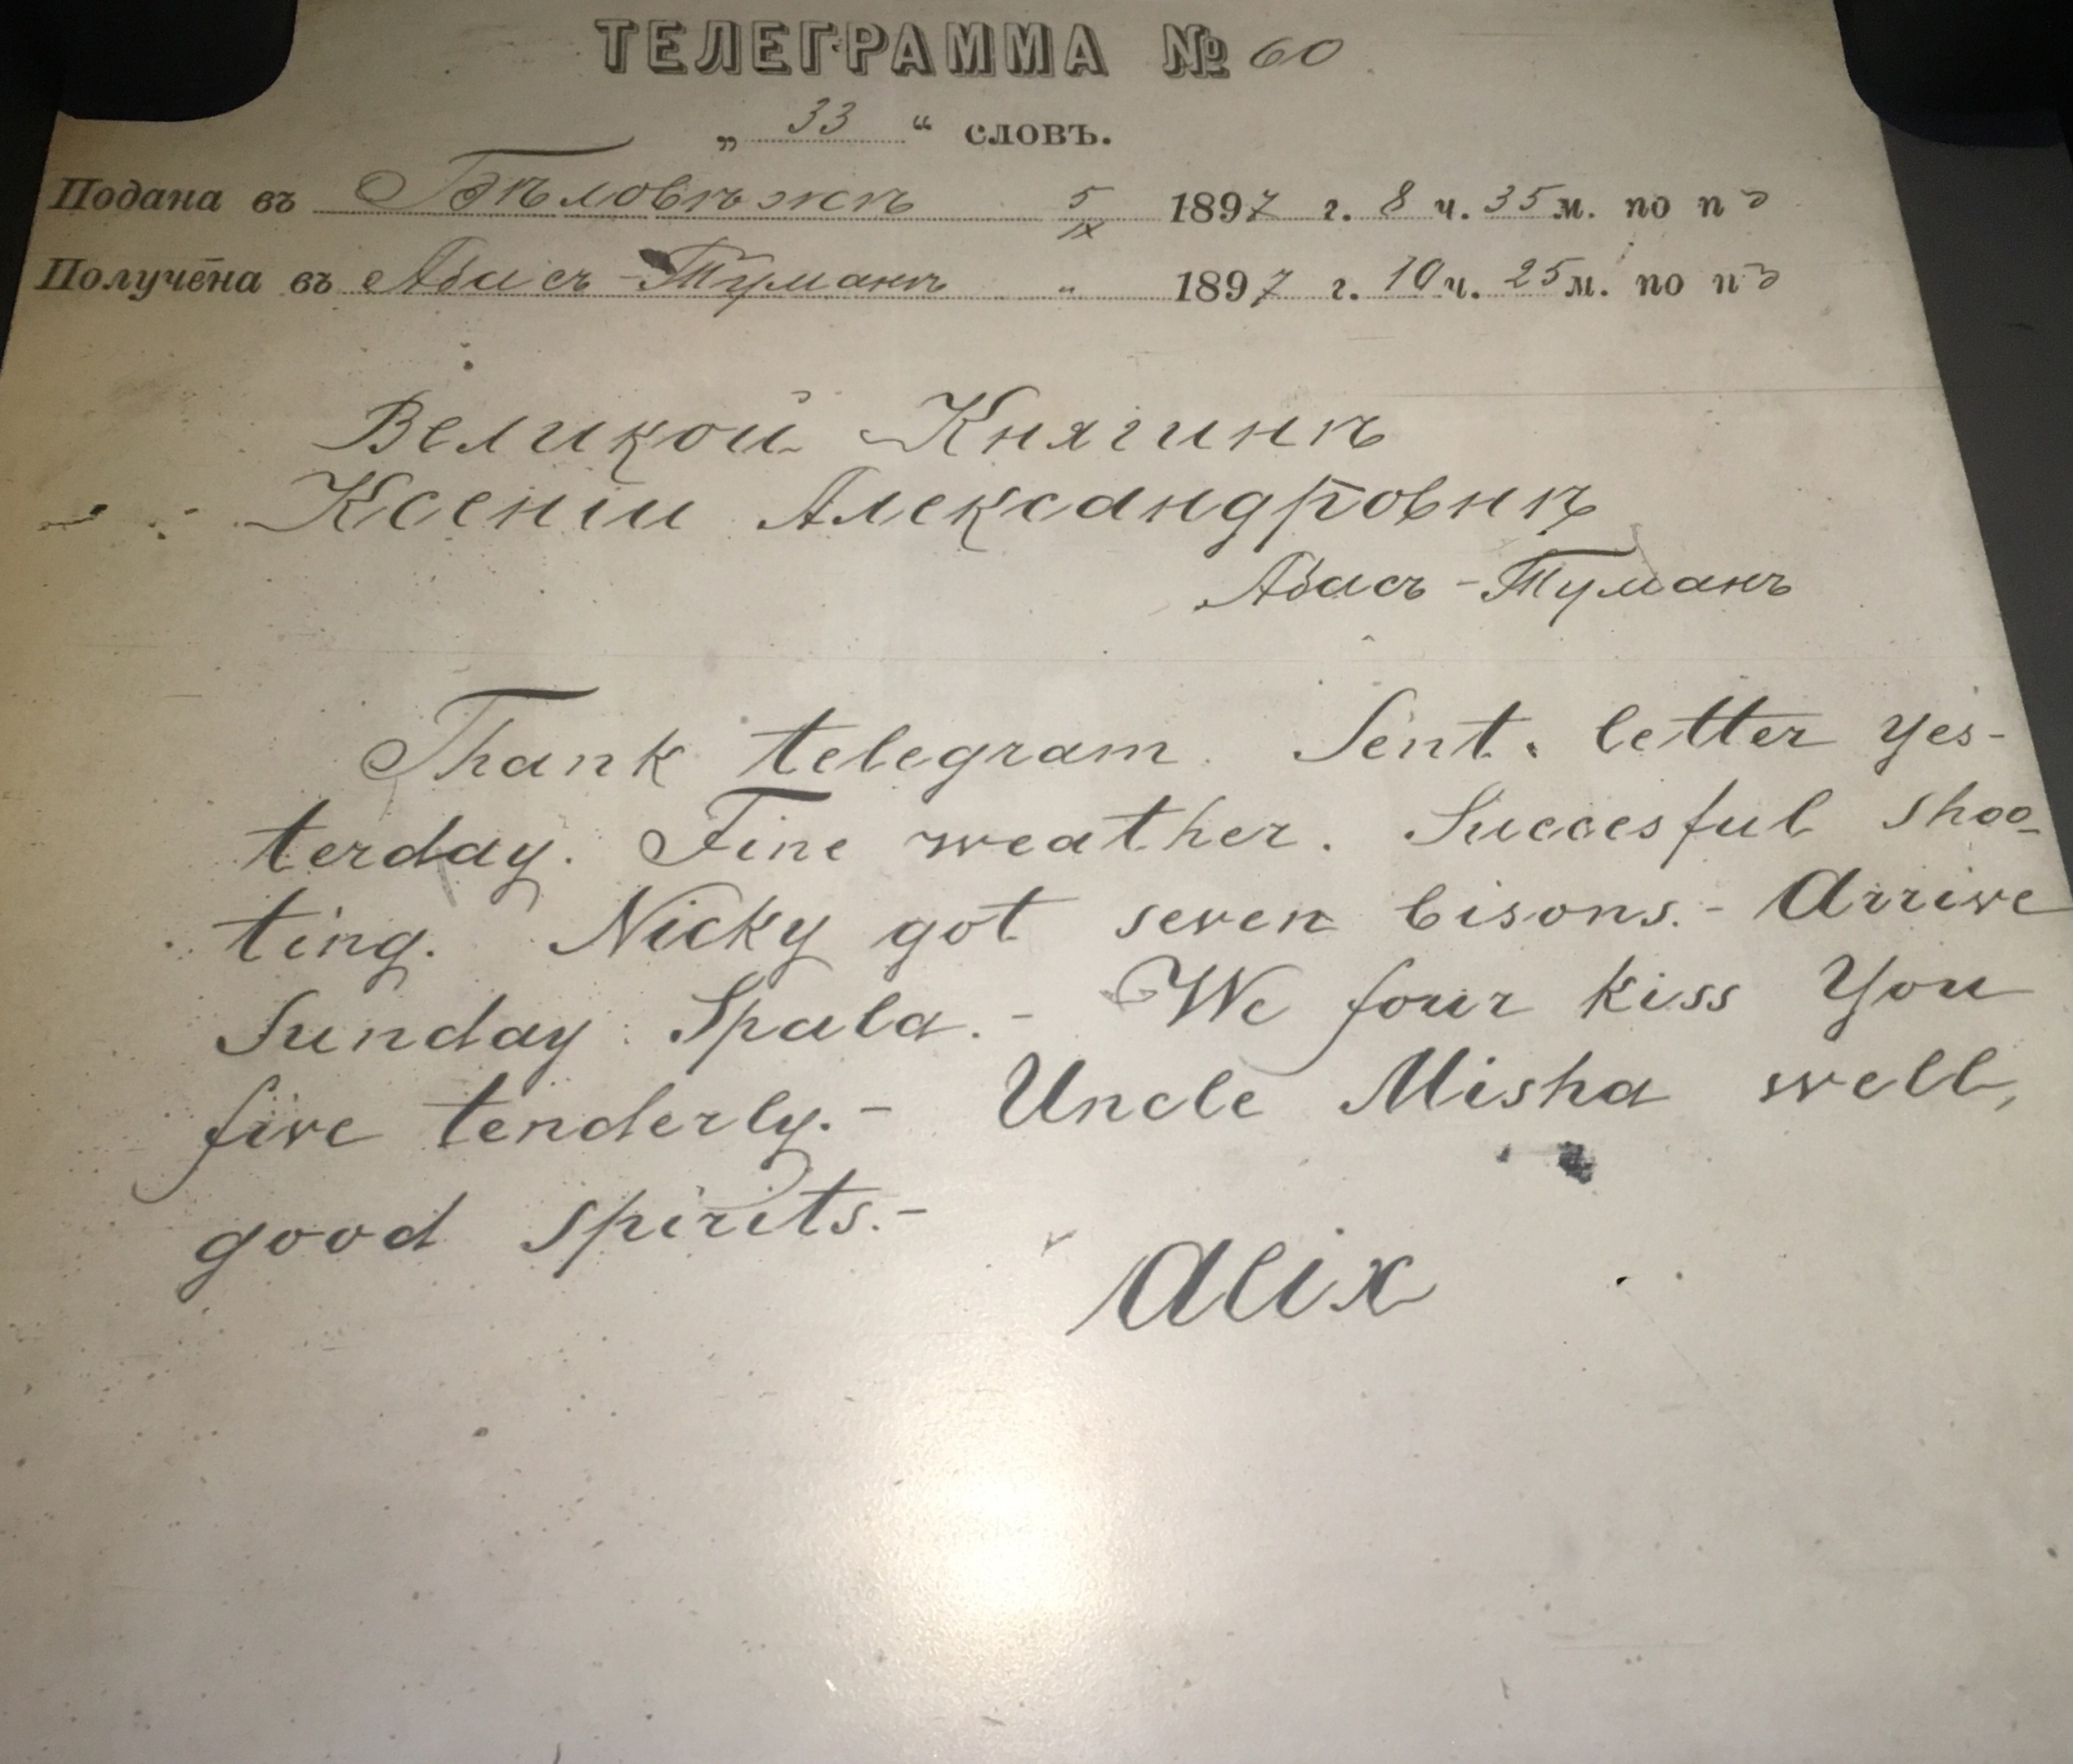 ТЕЛЕГРАММА № 60
„ 33 “ словъ.
Подана въ Бѣловѣжѣ 5/IX 1897 г. 8 ч. 35 м. по пъ
Получена въ Абасъ-Туманѣ " 1897 г. 10 ч. 25 м. по пъ
Великой Княгинѣ
Ксеніи Александровнѣ
Абасъ-Туманъ
Thank telegram. Sent. letter yes-
terday. Fine weather. Succesful shoo-
ting. Nicky got seven bisons.- Arrive
Sunday Spala.- We four kiss You
five tenderly.- Uncle Misha well,
good spirits.-
Alix